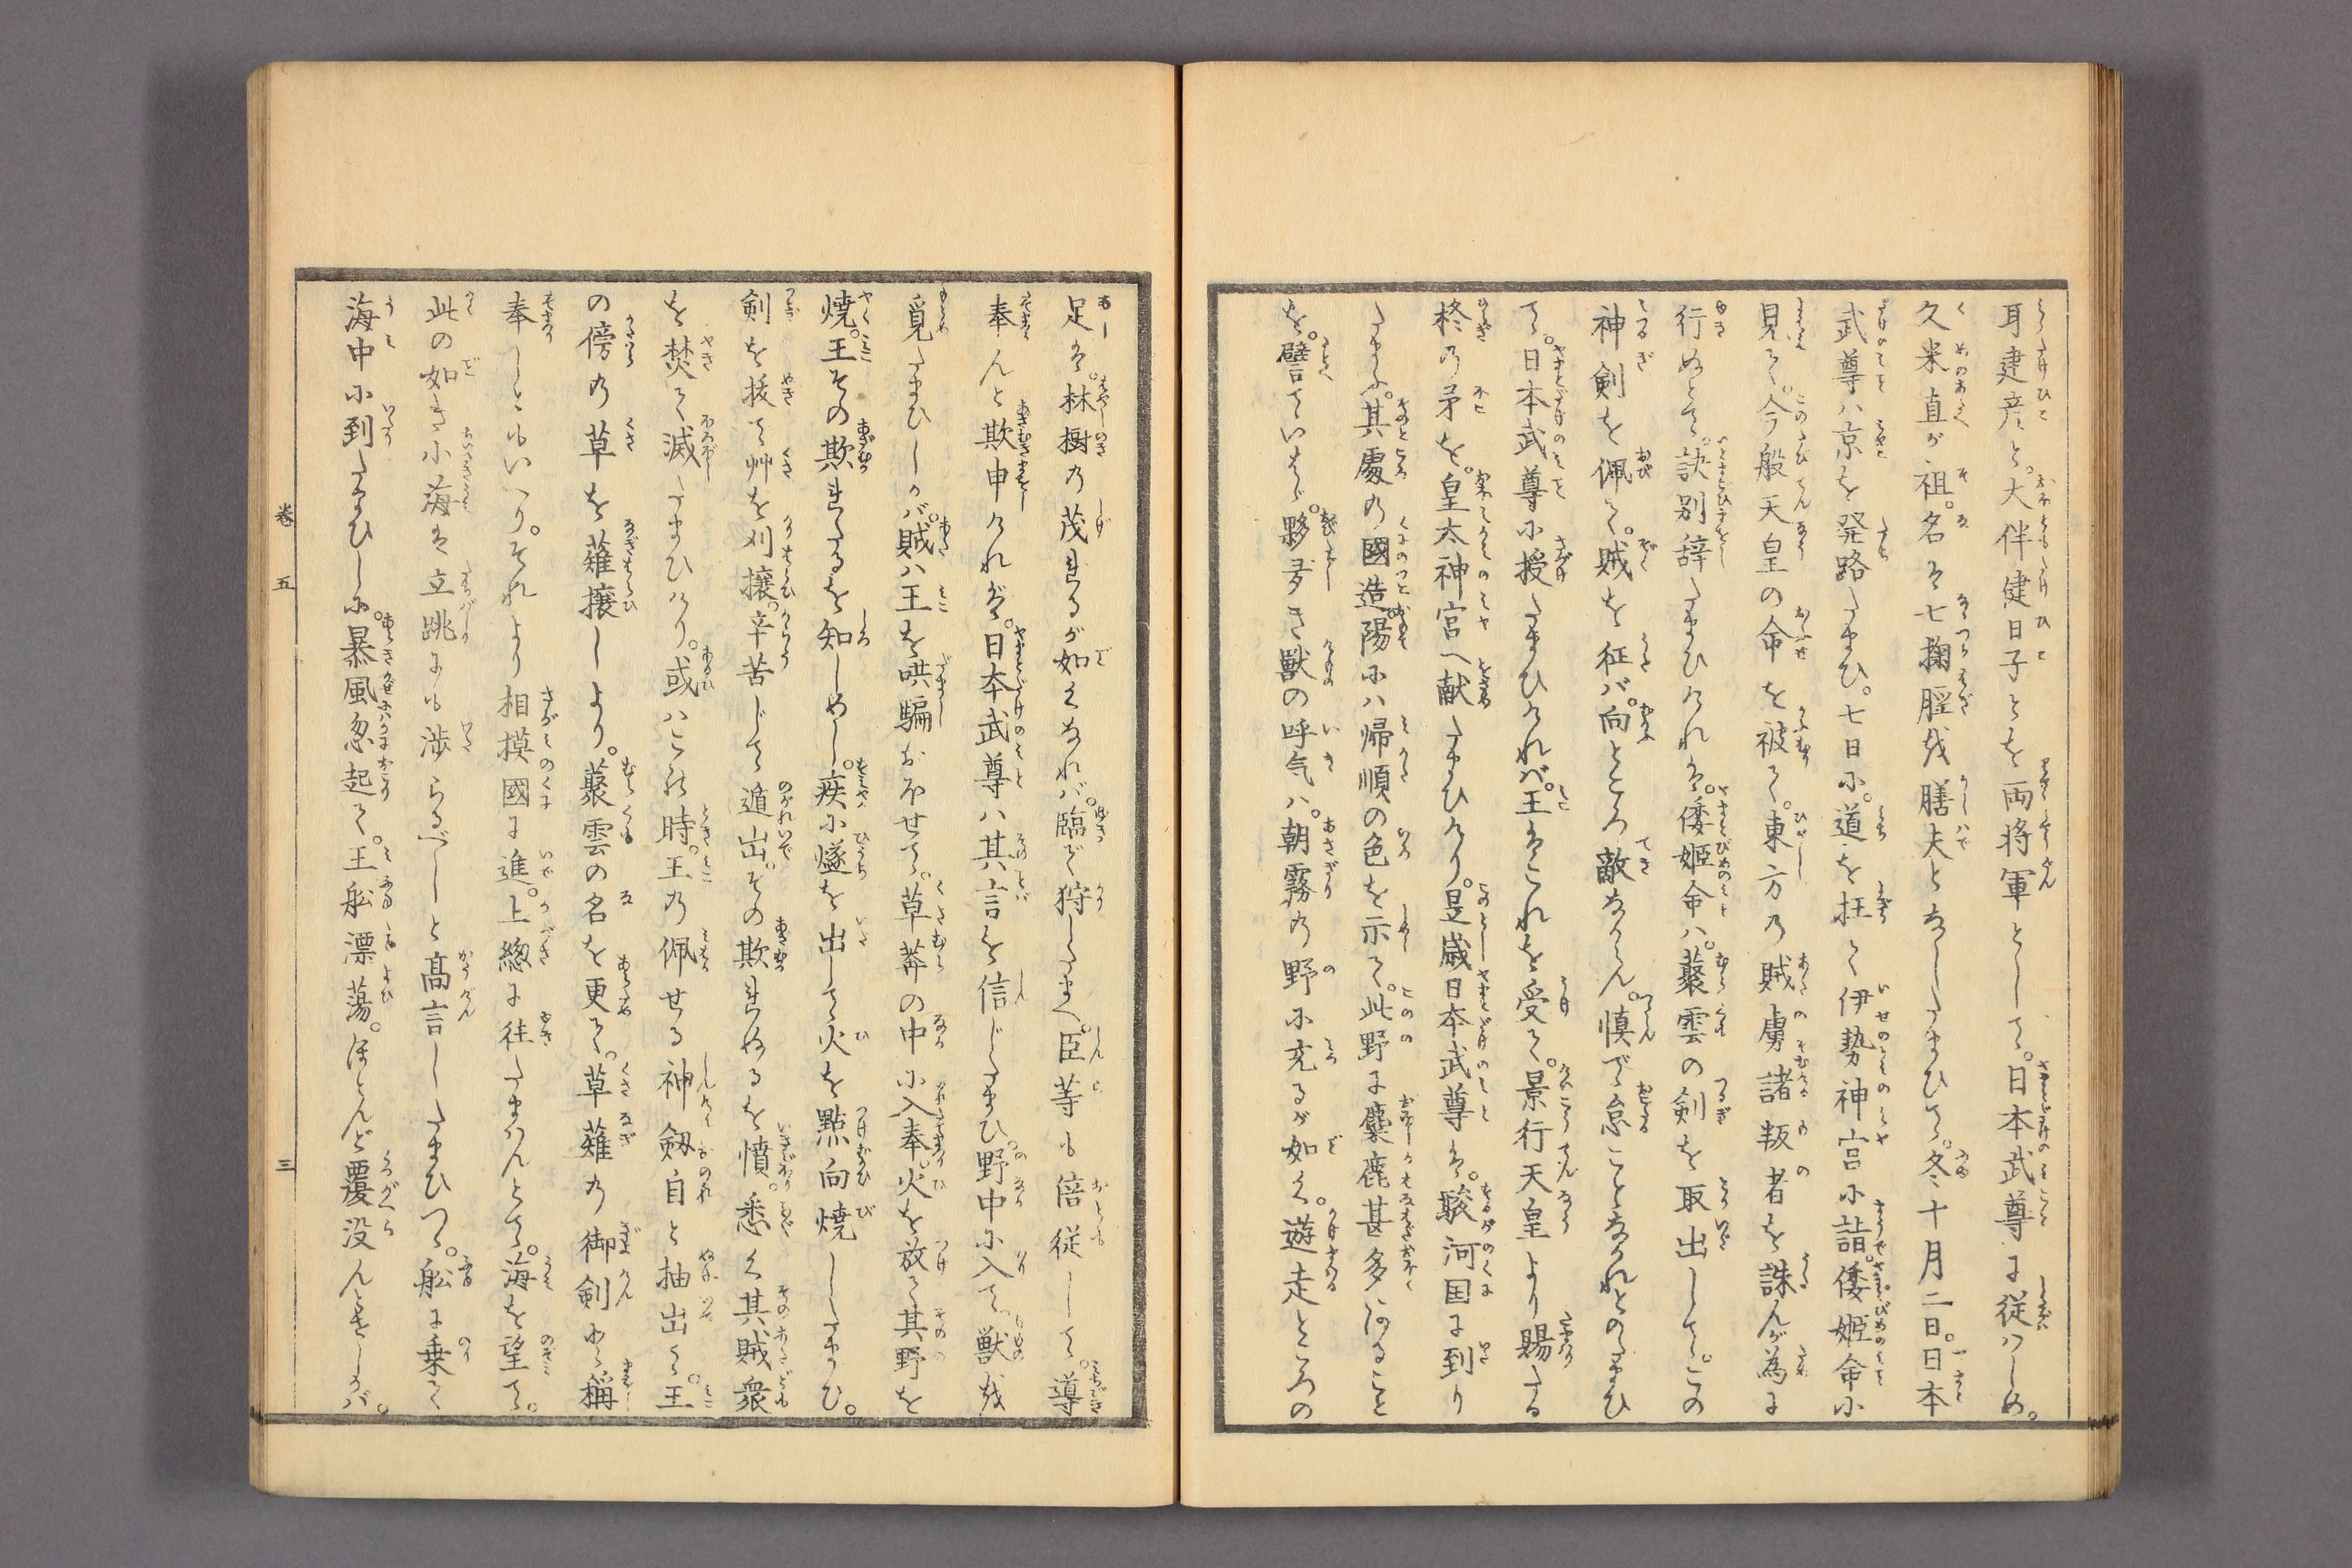 耳建彦と。大伴健日子とを両将軍として。日本武尊に従はしめ。
久米直が祖。名は七掬脛を膳夫となしたまひて。冬十月二日。日本
武尊ハ京を発路たまひ。七日に。道を枉て伊勢神宮に詣。倭姫命に
見て。今般天皇の命を被て。東方の賊虜諸叛者を誅んが為に
行ぬとて。訣別辞たまひけれは。倭姫命ハ。藂雲の剣を取出して。この
神剣を佩て。賊を征バ。向ところ敵なからん。慎で怠ことなかれとのたまひ
て。日本武尊に授たまひけれバ。王はこれを受て。景行天皇より賜たる
柊の矛を。皇太神宮へ献たまひけり。是歳日本武尊は。駿河国に到り
たまふ。其處の國造。陽にハ帰順の色を示て。此野に麋鹿甚多にあること
を。譬ていはゞ。夥多き獣の呼気ハ。朝霧の野に充るが如く。遊走ところの
足は。林樹の茂れるが如くなれバ。臨て狩したまへ。臣等も倍従して。導
奉んと欺申けれは。日本武尊ハ其言を信じたまひ。野中に入て。獣を
覓たまひしかバ。賊ハ王を哄騙おほせて。草莽の中に入奉。火を放て其野を
焼。王その欺れたるを知しめし。疾に燧を出して火を點向焼したまひ。
剣を抜て艸を刈攘。辛苦じて遁出。その欺れぬるを憤。悉く其賊衆
を焚て滅たまひけり。或ハこの時。王の佩せる神剱自と抽出て。王
の傍の草を薙攘しより。藂雲の名を更て。草薙の御剣と稱
奉しともいへり。それより相摸國に進。上緫に往たまはんとて。海を望て。
此の如き小海は立跳にも渉らるべしと高言したまひつゝ。舩に乗て
海中に到たまひしに。暴風忽起て。王舩漂蕩。ほとんど覆没んとせしかバ。
巻五
三